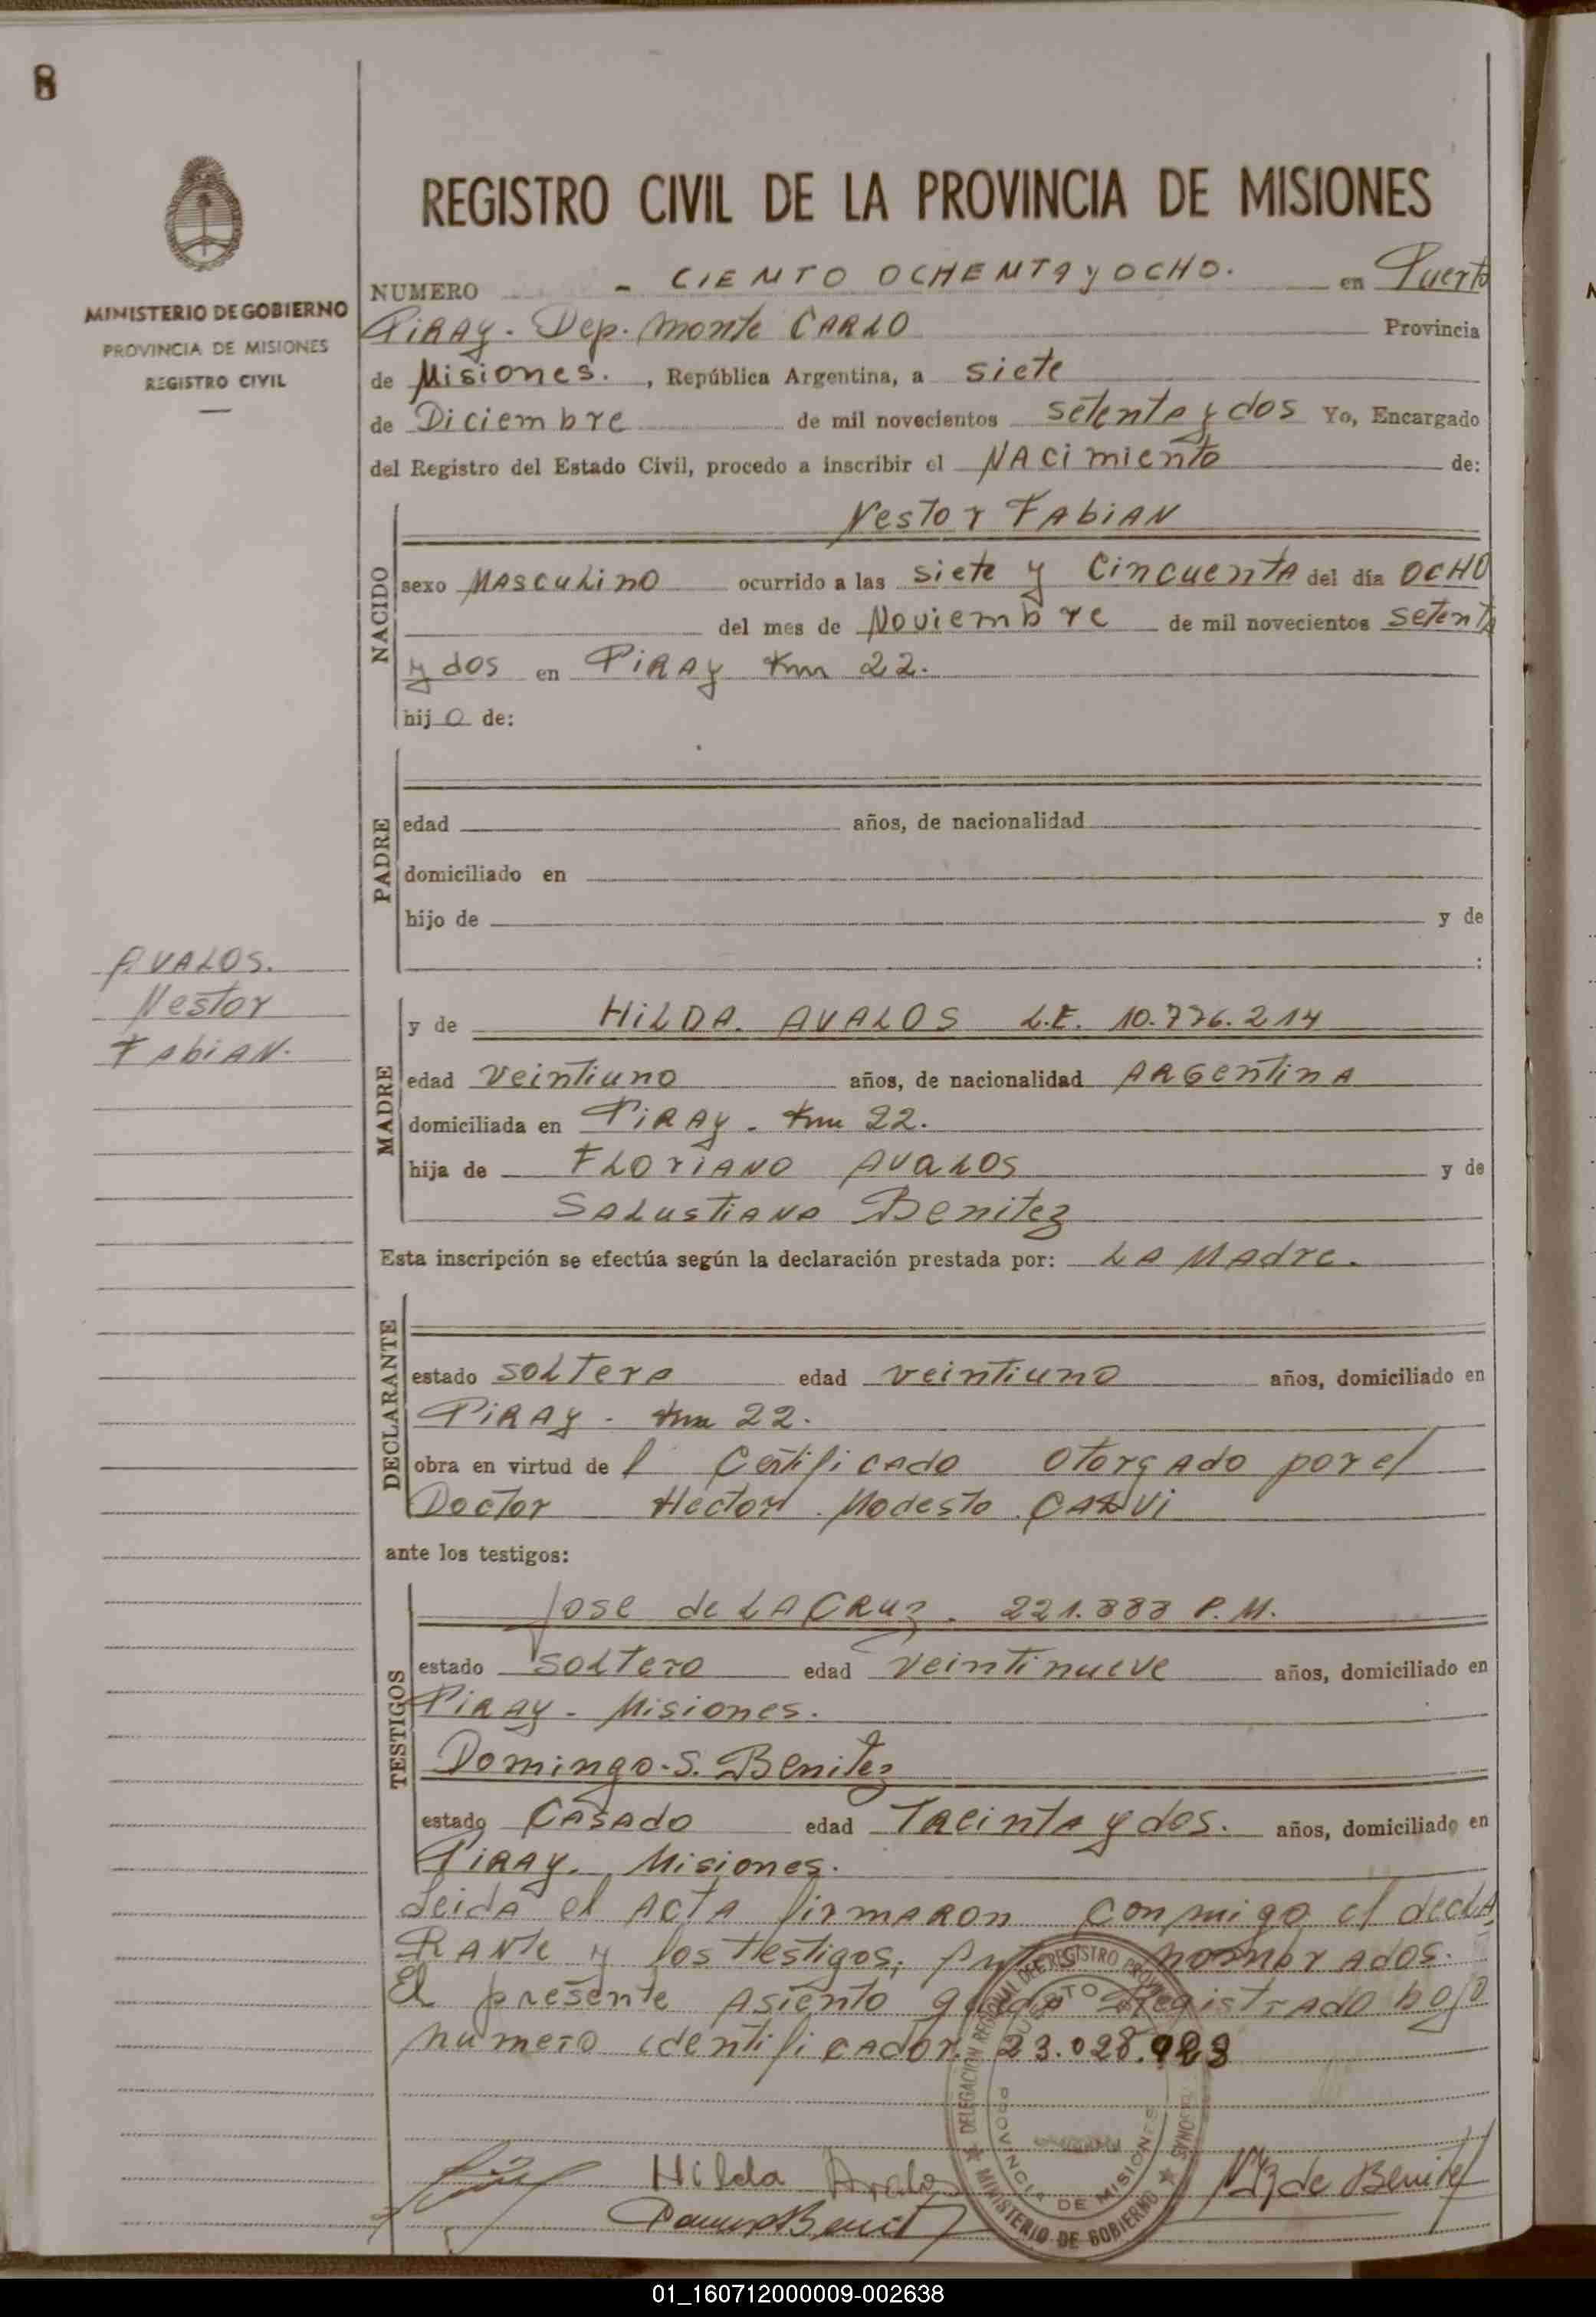 8
REGISTRO CIVIL DE LA PROVINCIA DE MISIONES
MINISTERIO DE GOBIERNO
PROVINCIA DE MISIONES
REGISTRO CIVIL
NUMERO - CIENTO OCHENTA y OCHO. en Puerto
PiRAy. Dep. Monte CARLO Provincia
de Misiones. , República Argentina, a siete
de Diciembre de mil novecientos setenta y dos Yo, Encargado
del Registro del Estado Civil, procedo a inscribir el NAcimiento de:
NACIDO
Nestor FAbiAN
sexo MAscuLinO ocurrido a las siete y Cincuenta del día OCHO
del mes de Noviembre de mil novecientos setenta
y dos en PiRAy Km 22.
hijo de:
PADRE
edad años, de nacionalidad
domiciliado en
hijo de y de
:
AVALOS.
Nestor
FAbiAN.
MADRE
y de HiLDA. AVALOS L.E. 10.776.214
edad Veintiuno años, de nacionalidad ARGentinA
domiciliada en PiRAy. Km 22.
hija de FLOriANO AvaLOS y de
SALustiANA Benitez
Esta inscripción se efectúa según la declaración prestada por: LA MAdre.
DECLARANTE
estado soltera edad veintiuno años, domiciliado en
PiRAy. Km 22.
obra en virtud de l Certificado Otorgado por el
Doctor Hector Modesto CALVi
ante los testigos:
TESTIGOS
Jose de LA CRuz. 221.888 P.M.
estado soltero edad veintinueve años, domiciliado en
PiRAy. Misiones.
Domingo. S. Benitez
estado CASAdo edad TReinta y dos. años, domiciliado en
PiRAy. Misiones.
Leida el ActA firmARon conmigo el declA
RAnte y los testigos, Antes nombrados.
El presente Asiento queda Registrado bajo
numero identificador. 23.028.983
DELEGACION REGIONAL DEL REGISTRO PROVINCIAL
PROVINCIA DE MISIONES
MINISTERIO DE GOBIERNO
Hilda Avalos
de Benitez
01_160712000009-002638